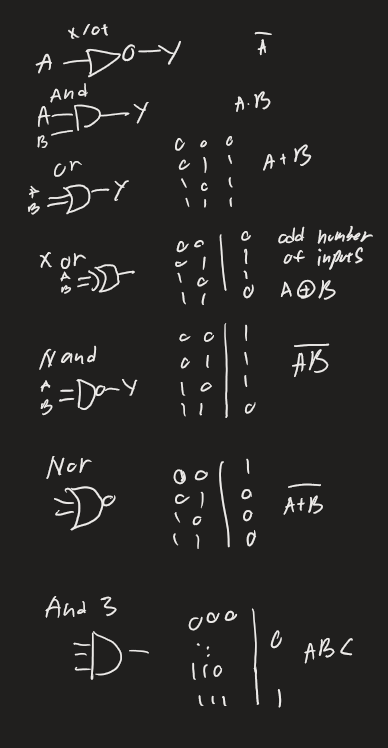 Not
A Y A̅
And
A B Y A·B
or
A B Y A+B
0 0 0
0 1 1
1 0 1
1 1 1
Xor
A B A⊕B
0 0 | 0
0 1 | 1
1 0 | 1
1 1 | 0
odd number
of inputs
Nand
A B Y A̅B̅
0 0 | 1
0 1 | 1
1 0 | 1
1 1 | 0
Nor
A̅+̅B̅
0 0 | 1
0 1 | 0
1 0 | 0
1 1 | 0
And 3
000 | 0
:
110
111 | 1
ABC